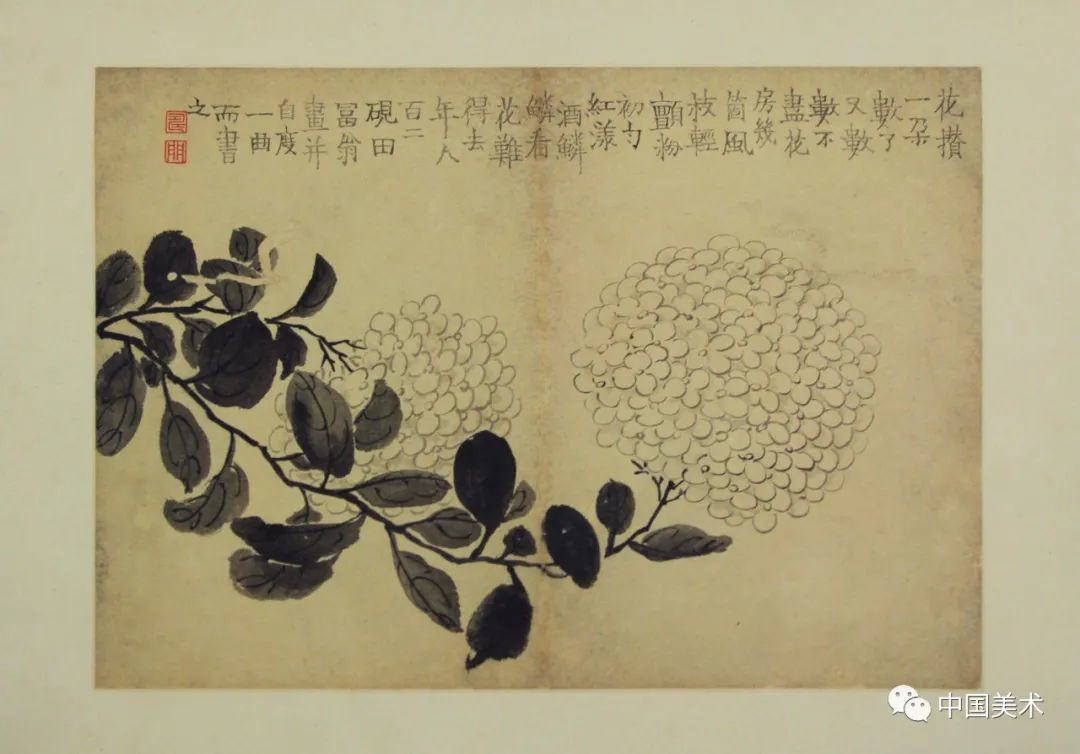 花攢
一朵
數了
又數
數不
盡花
房幾
箇風
枝輕
顫粉
初勻
紅漾
酒鱗
鱗看
花難
得去
年人
百二
硯田
冨翁
畫并
自度
一曲
而書
之
中国美术